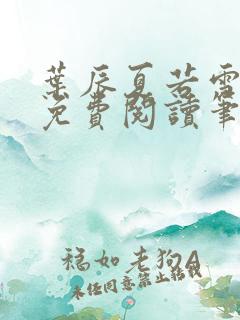 葉辰夏若雪
免費閱讀筆
福如老狗A
未经同意禁止轉載